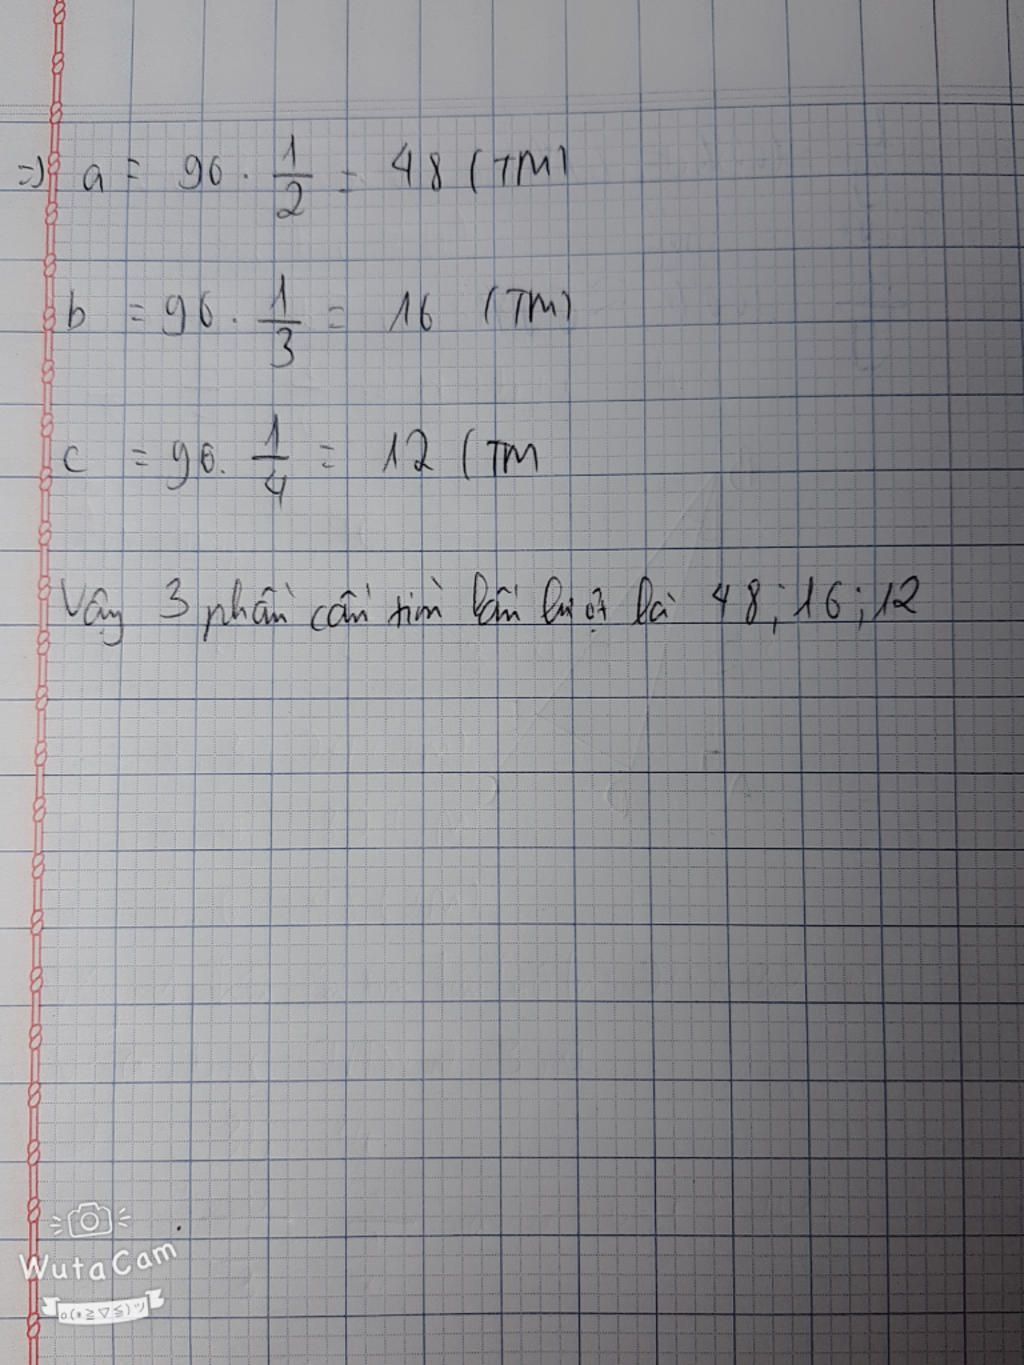 =) a = 96 . 1/2 = 48 (TM)
b = 96 . 1/3 = 16 (TM)
c = 96 . 1/4 = 12 (TM
Vậy 3 phần cần tìm lần lượt là 48; 16; 12
WutaCam
o(*≧▽≦)ツ